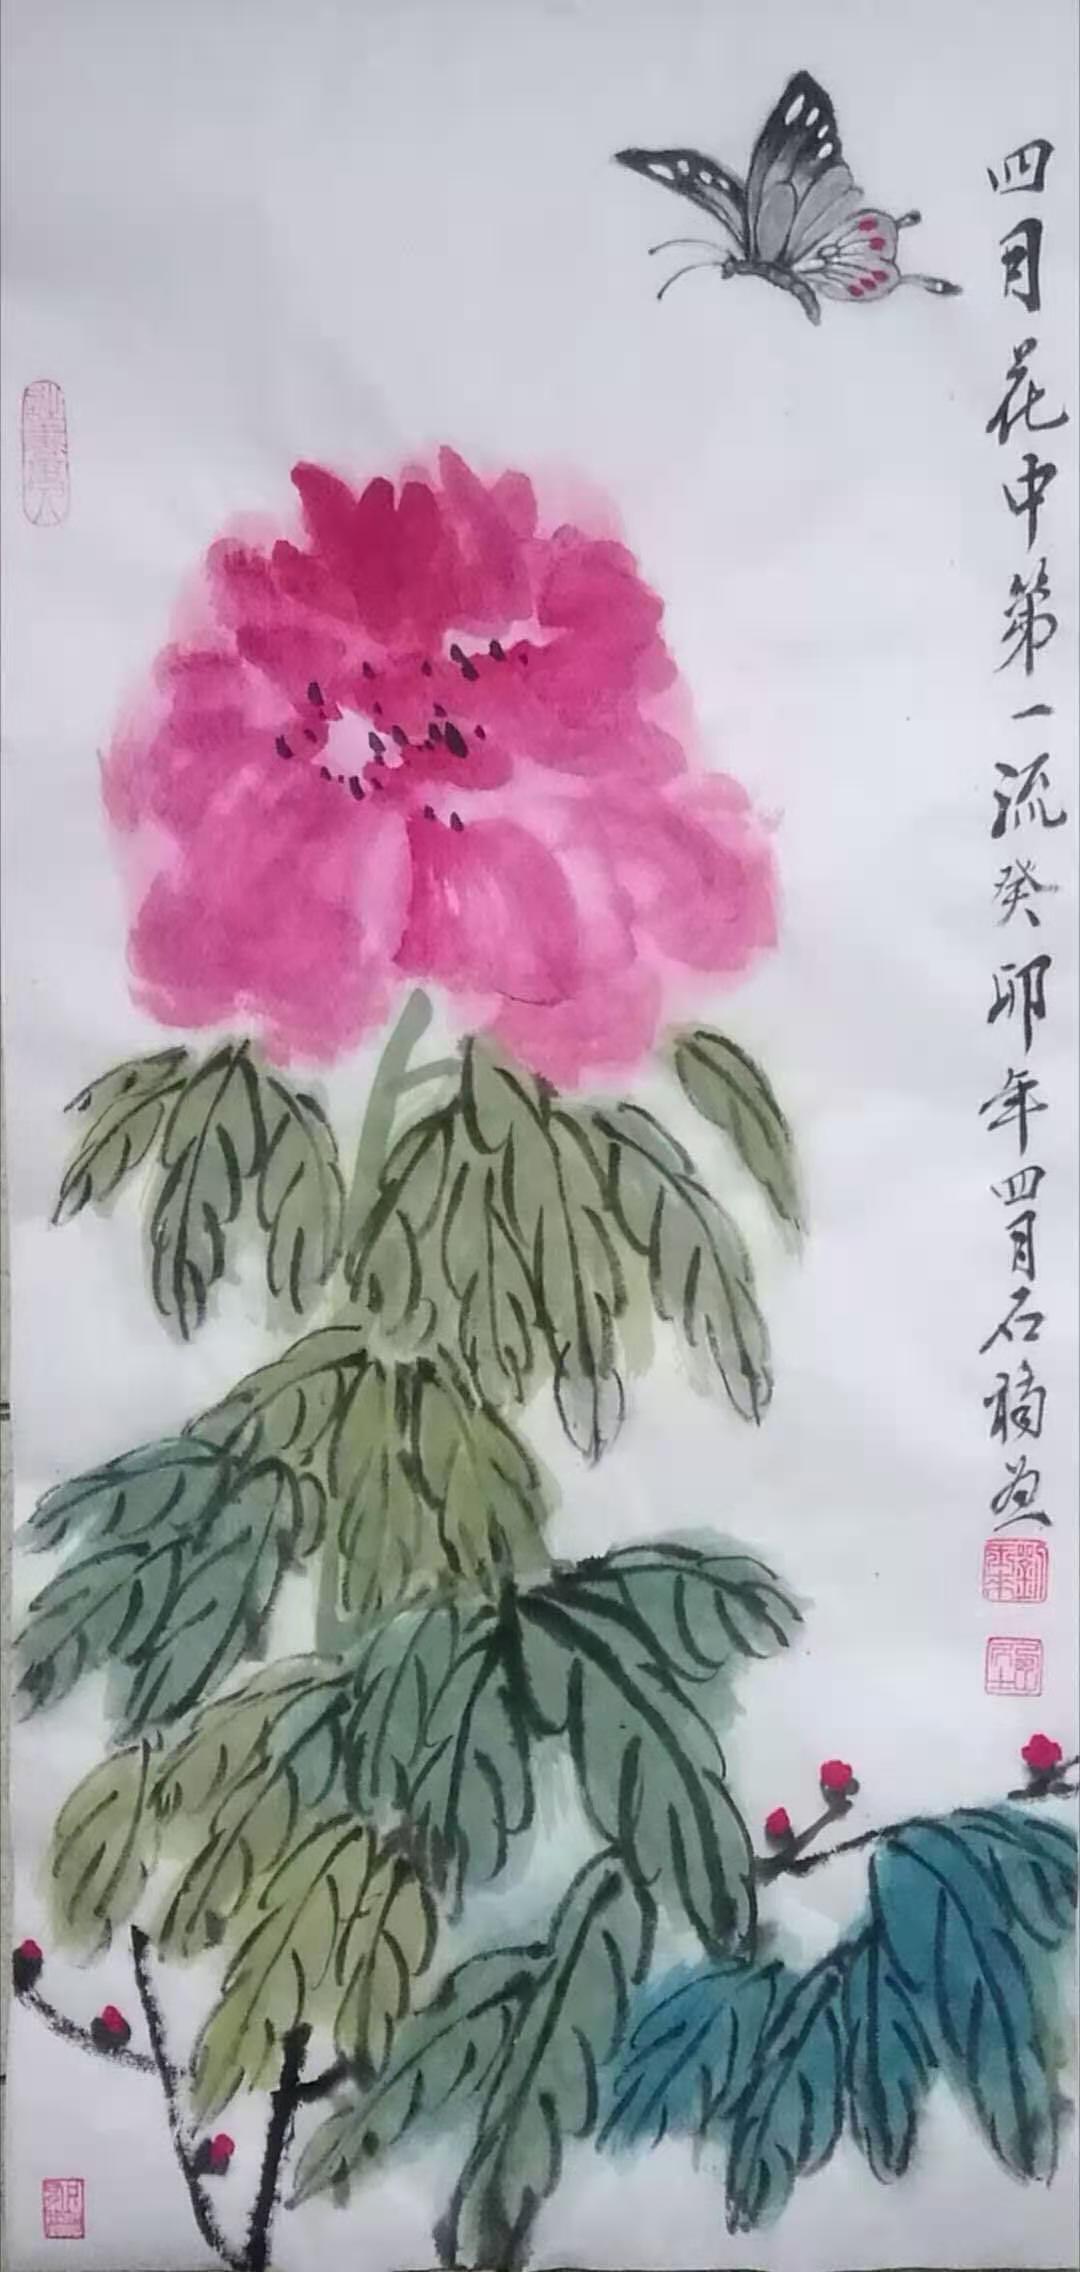 四月花中第一流 癸卯年四月石 画